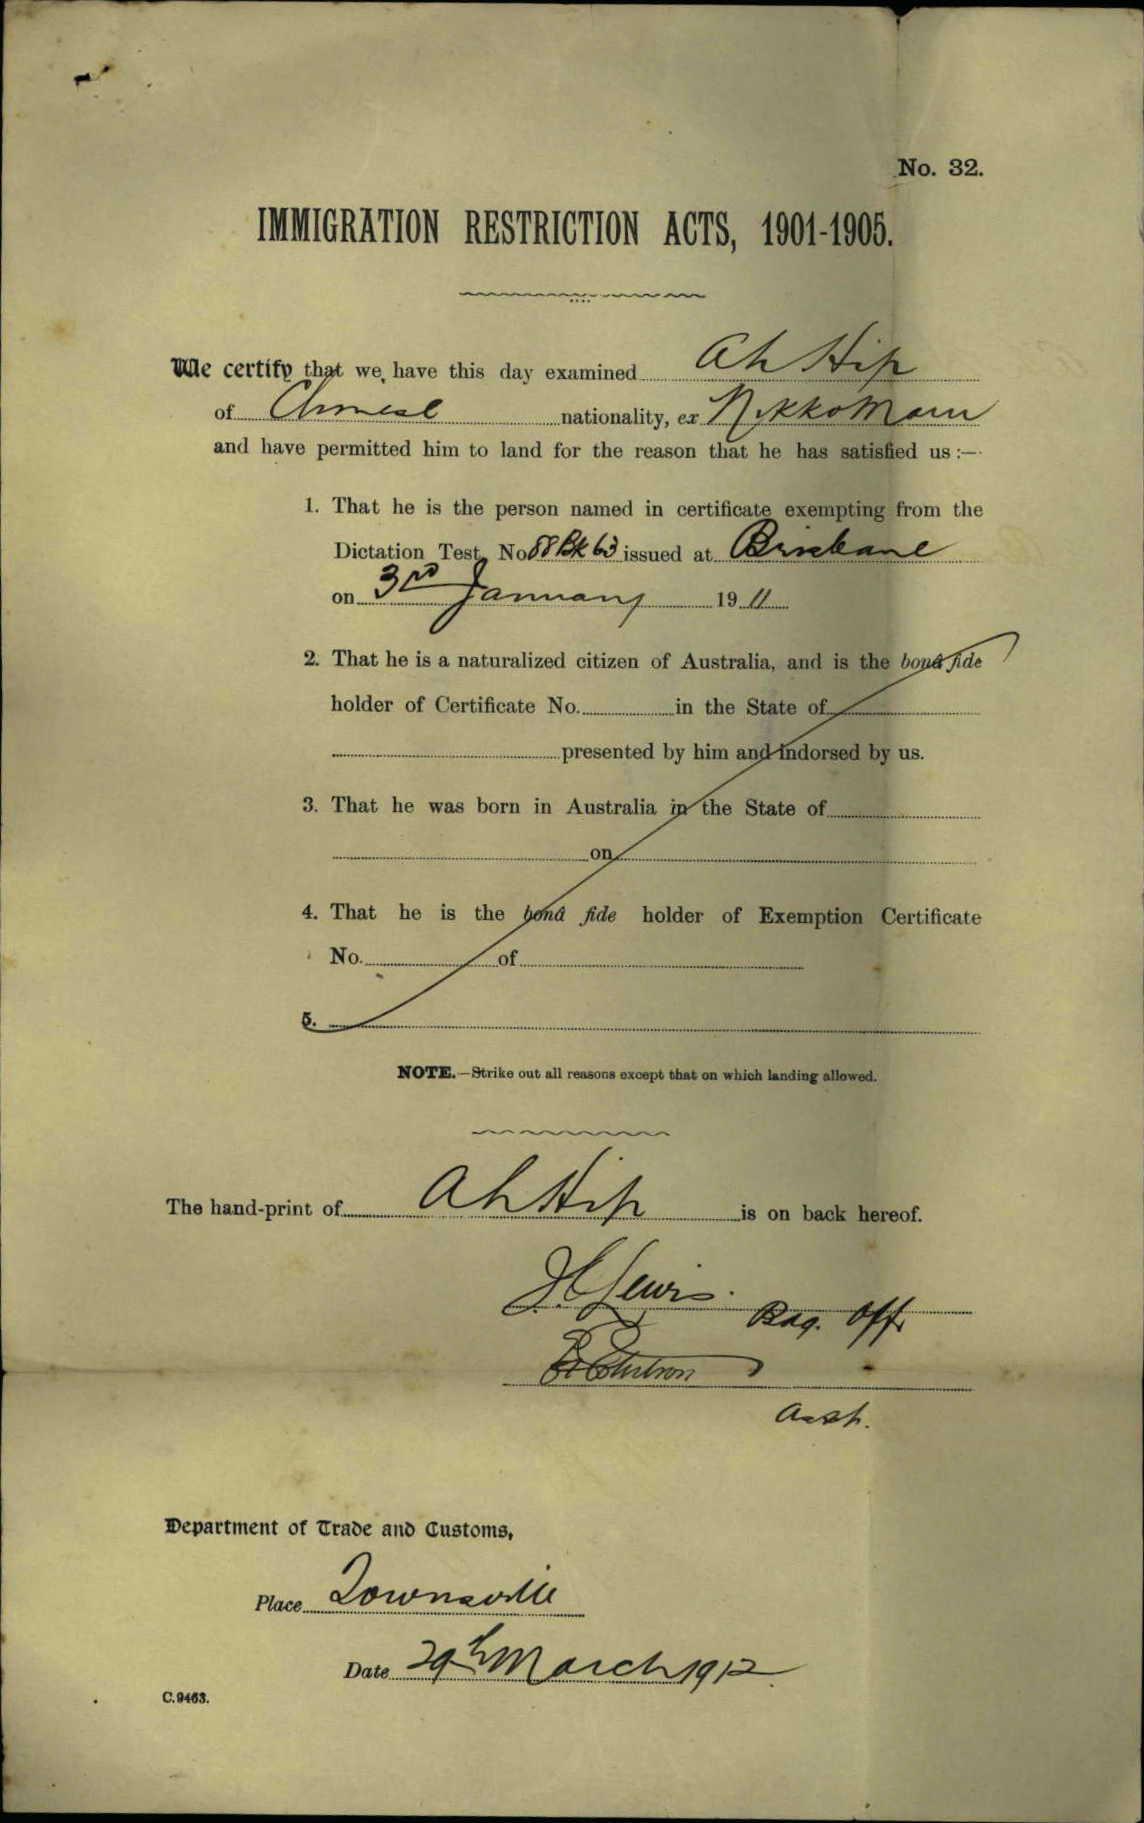 No. 32.
IMMIGRATION RESTRICTION ACTS, 1901-1905.
We certify that we have this day examined Ah Hip
of Chinese nationality, ex Nikko Maru
and have permitted him to land for the reason that he has satisfied us :—
1. That he is the person named in certificate exempting from the
Dictation Test, No 88 Bk 63 issued at Brisbane
on 3rd January 1911
2. That he is a naturalized citizen of Australia, and is the bonâ fide
holder of Certificate No. in the State of
presented by him and indorsed by us.
3. That he was born in Australia in the State of
on
4. That he is the bonâ fide holder of Exemption Certificate
No. of
5.
NOTE.—Strike out all reasons except that on which landing allowed.
The hand-print of Ah Hip is on back hereof.
J C Lewis.
Bag. Offr
Asst.
Department of Trade and Customs,
Place Townsville
Date 29th March 1912
C.9463.